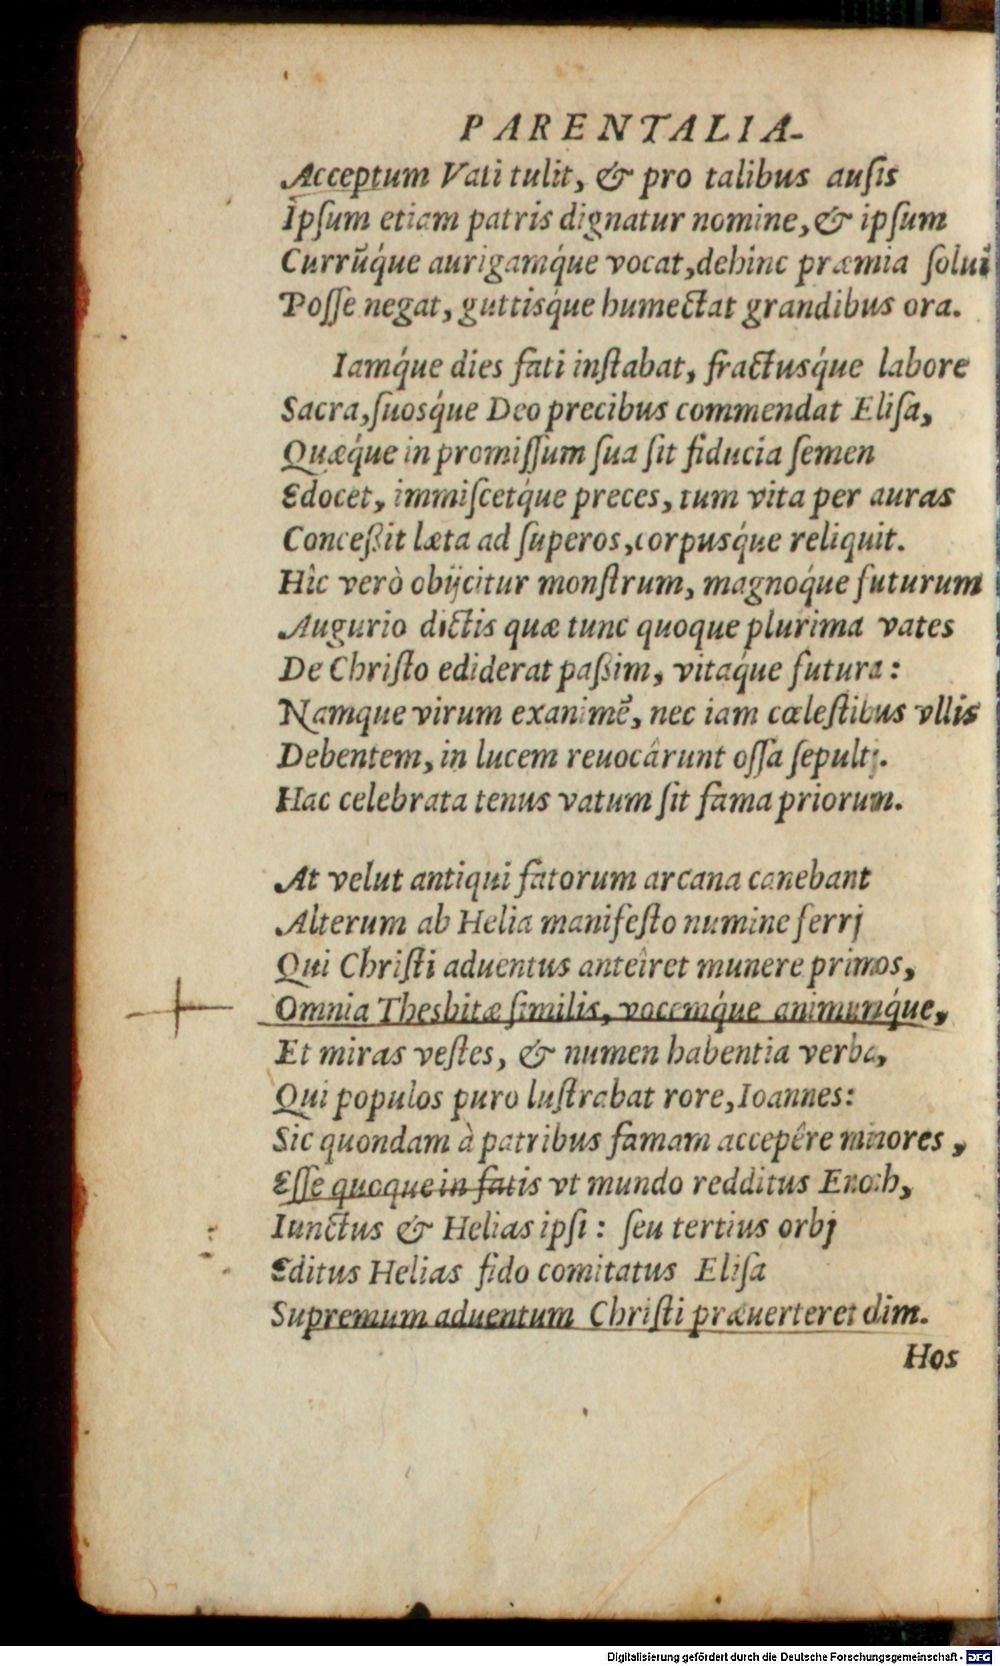 PARENTALIA-
Acceptum Vati tulit, & pro talibus auſis
Ipſum etiam patris dignatur nomine, & ipſum
Currũq́ue aurigamq́ue vocat, dehinc præmia ſolui
Poſſe negat, guttisq́ue humectat grandibus ora.
Iamq́ue dies fati inſtabat, fractusq́ue labore
Sacra, ſuosq́ue Deo precibus commendat Eliſa,
Quæq́ue in promiſſum ſua ſit fiducia ſemen
Edocet, immiſcetq́ue preces, tum vita per auras
Conceßit læta ad ſuperos, corpusq́ue reliquit.
Hîc verò obijcitur monſtrum, magnoq́ue futurum
Augurio dictis quæ tunc quoque plurima vates
De Chriſto ediderat paßim, vitaq́ue futura:
Namque virum exanimẽ, nec iam cœleſtibus vllis
Debentem, in lucem reuocârunt oſſa ſepulti.
Hac celebrata tenus vatum ſit fama priorum.
At velut antiqui fatorum arcana canebant
Alterum ab Helia manifeſto numine ferrj
Qui Chriſti aduentus anteîret munere primos,
Omnia Thesbitæ ſimilis, vocemq́ue animumq́ue,
Et miras veſtes, & numen habentia verba,
Qui populos puro luſtrabat rore, Ioannes:
Sic quondam à patribus famam accepêre minores,
Eſſe quoque in fatis vt mundo redditus Enoch,
Iunctus & Helias ipſi: ſeu tertius orbj
Editus Helias fido comitatus Eliſa
Supremum aduentum Chriſti præuerteret dim.
Hos
Digitalisierung gefördert durch die Deutsche Forschungsgemeinschaft - DFG